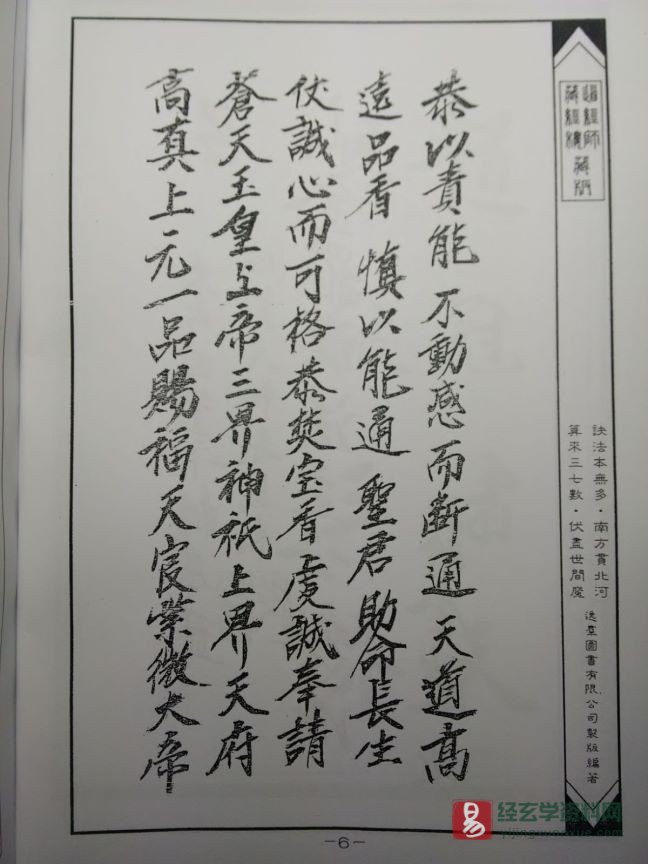 恭以責能 不動感而斷通 天道高
遠品香 慎以能通 聖君助命長生
仗誠心而可格恭焚宝香虔誠奉請
蒼天玉皇上帝三界神祇上界天府
高真上元一品賜福天官紫微大帝
道經師
藏經樓 藏版
訣法本無多·南方貫北河
算來三七數·伏盡世間魔
逸羣圖書有限公司製版編著
-6-
易 经玄学资料网